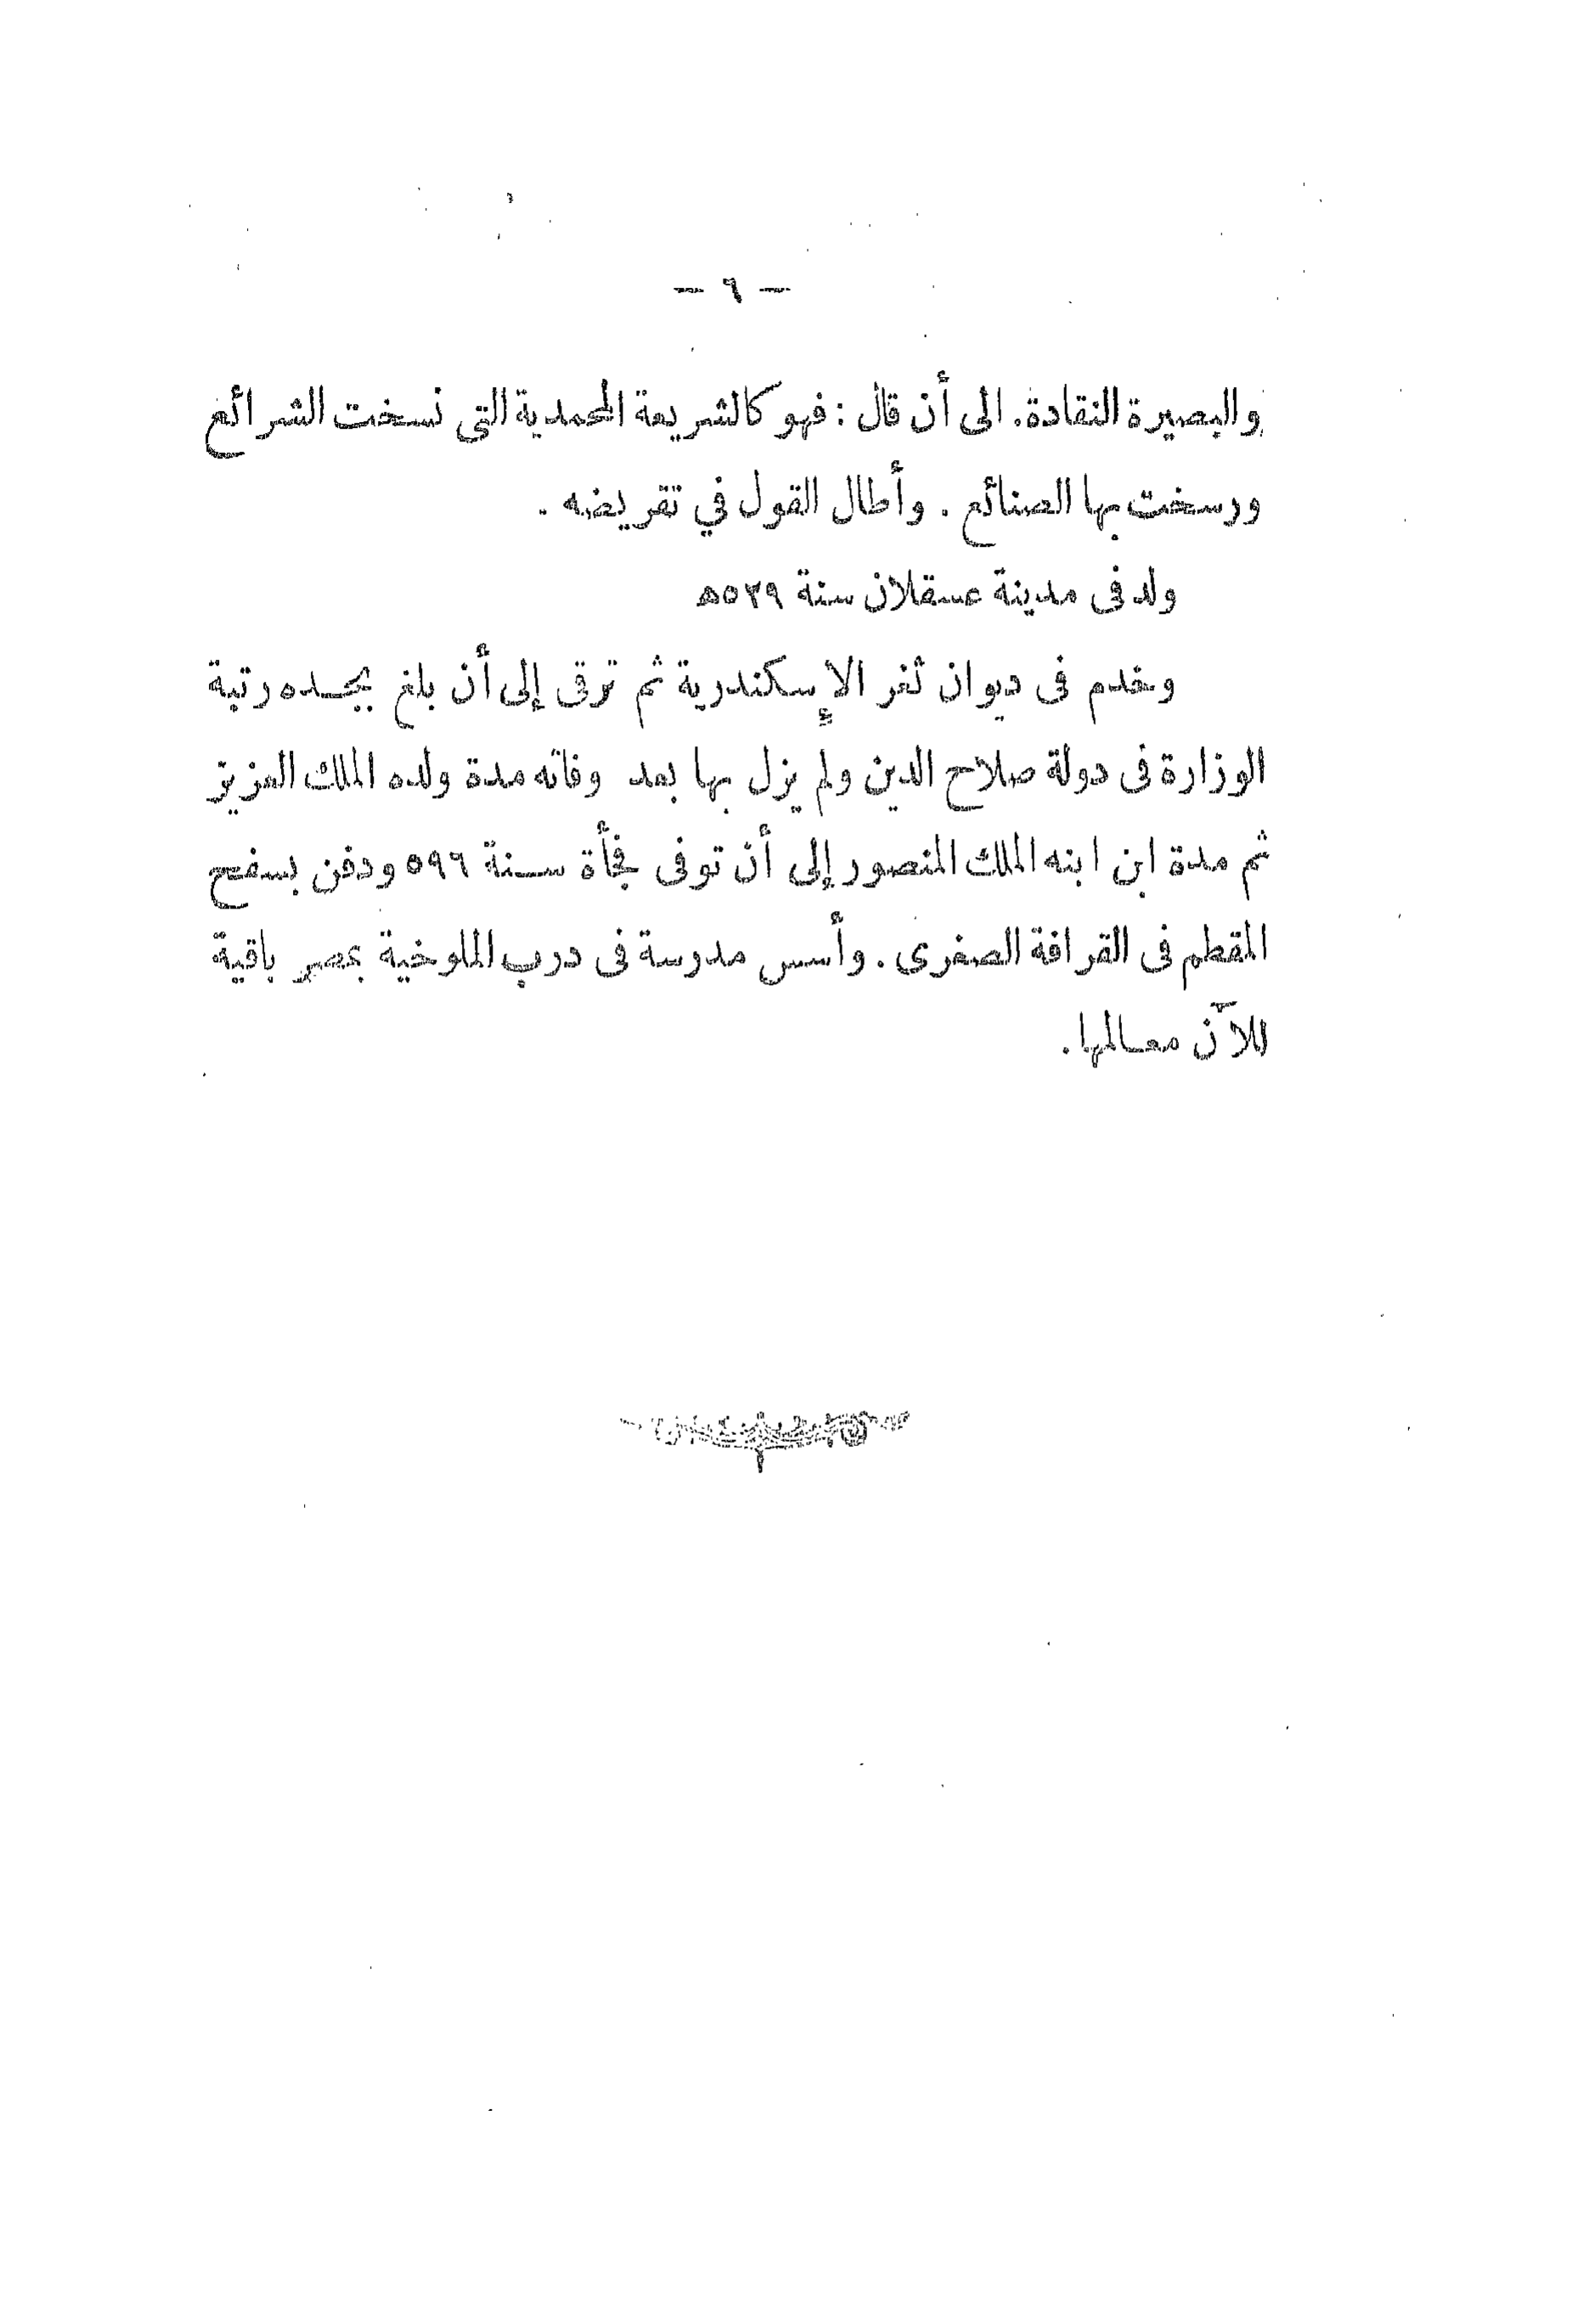 — ٦ —
والبصيرة النقادة. الى أن قال : فهو كالشريعة المحمدية التي نسخت الشرائع
ورسخت بها الصنائع . وأطال القول في تقريضه .
ولد فى مدينة عسقلان سنة ٥٢٩ه
وخدم فى ديوان ثغر الإسكندرية ثم ترقى إلى أن بلغ بجده رتبة
الوزارة فى دولة صلاح الدين ولم يزل بها بعد وفاته مدة ولده الملك العزيز
ثم مدة ابن ابنه الملك المنصور إلى أن توفى فجأة سنة ٥٩٦ ودفن بسفح
المقطم فى القرافة الصغرى . وأسس مدرسة فى درب الملوخية بمصر باقية
للآن معالمها .